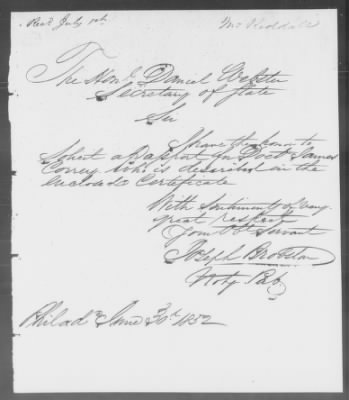 Recd July 1st
The Honl Daniel Webster
Secretary of State
Sir
I have the honor to
Solicit a Passport for Doct James
who is described in the
enclosed Certificate
With Sentiments of very
great respect
Your Obt Servant
Joseph
Noty Pub
Philada June 30th 1852